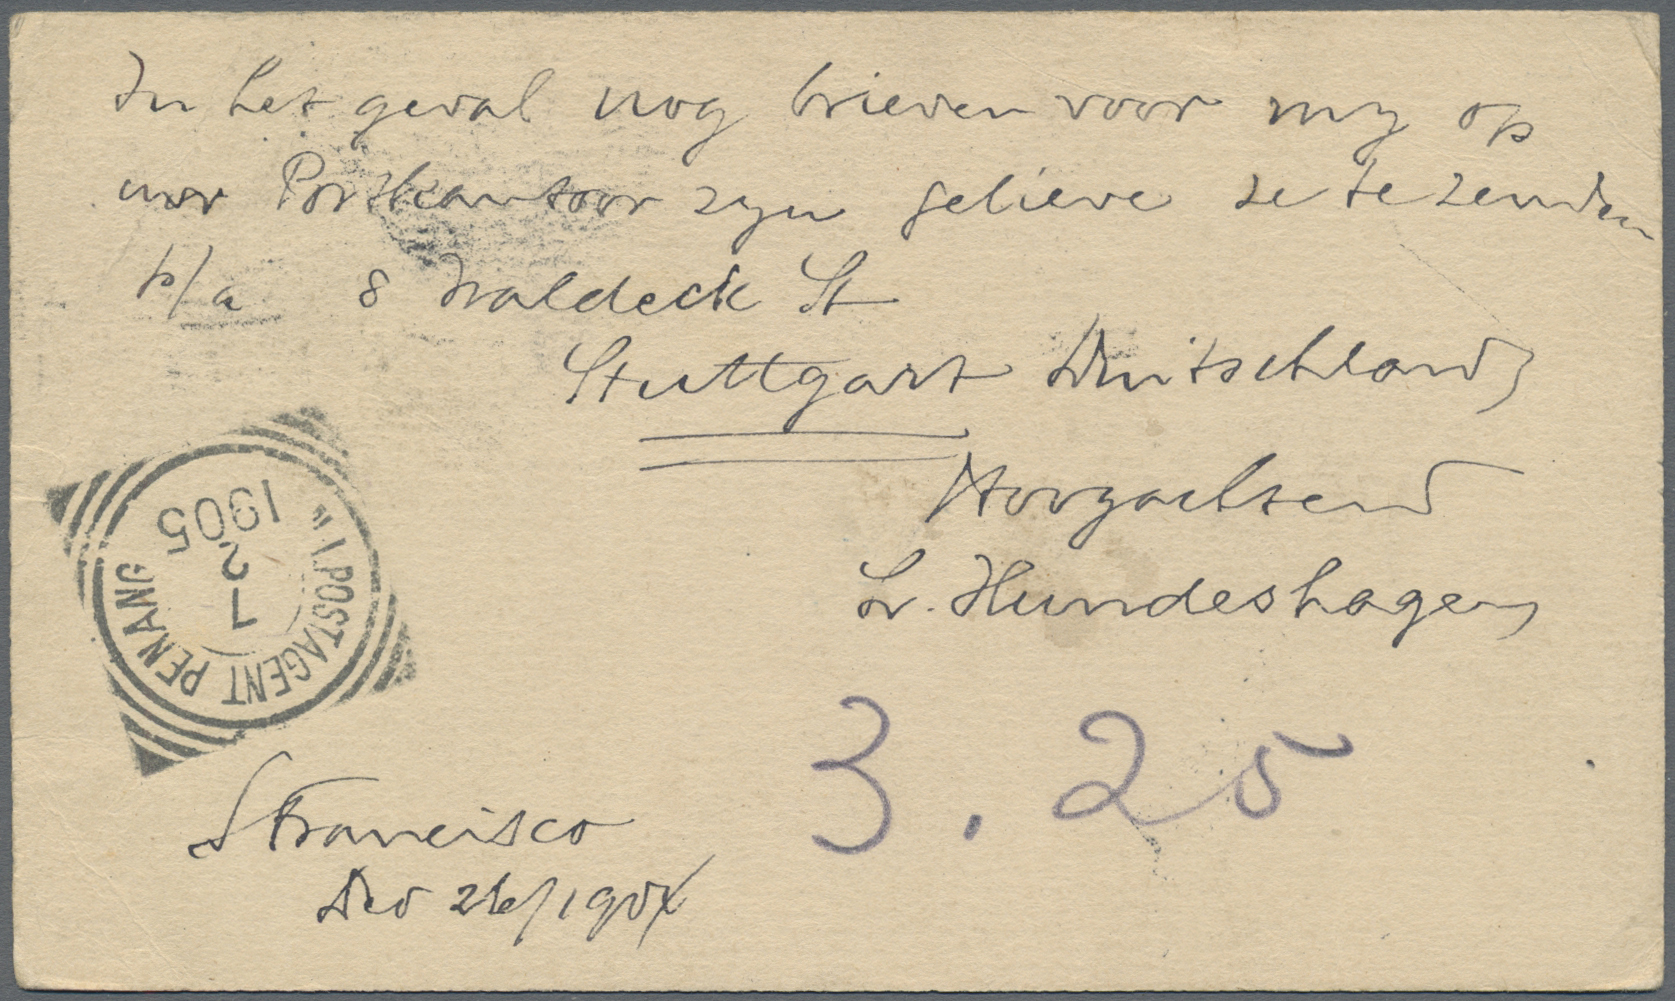 In het geval nog brieven voor my op
uw Postkantoor zyn gelieve ze te zenden
p/a 8 Waldeck St
Stuttgart Deutschland
Hoogachtend
L. Hundeshagen
"1. POSTAGENT PENANG
7
2
1905
S Francisco
Dec 26/1904
3.25